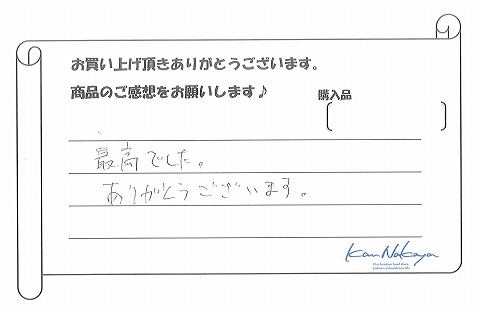 お買い上げ頂きありがとうございます。
商品のご感想をお願いします♪
購入品
最高でした。
ありがとうございます。
Kan Nakaya